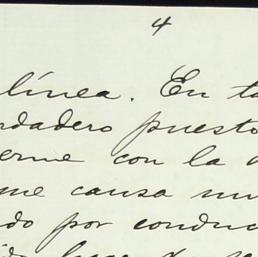 4
línea. En ta
rdadero puesto
erme con la
me causa mu
do por conduc